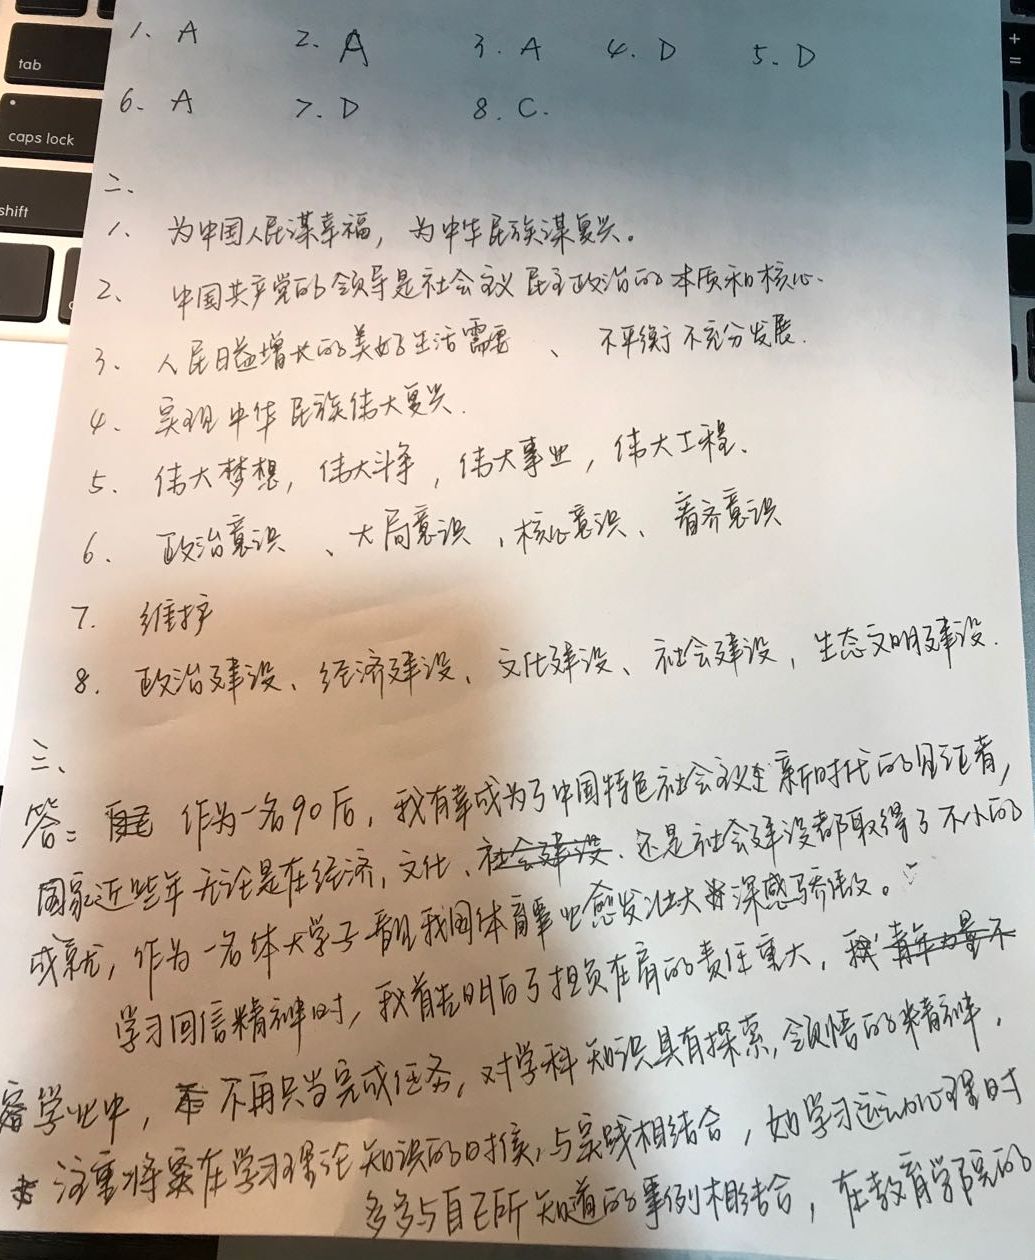 tab
caps lock
shift
+
=
1、A 2. A 3. A 4. D 5、D
6、A 7. D 8. C.
二、
1、为中国人民谋幸福，为中华民族谋复兴。
2、中国共产党的领导是社会主义民主政治的本质和核心.
3、人民日益增长的美好生活需要、不平衡不充分发展.
4、实现中华民族伟大复兴.
5、伟大梦想，伟大斗争，伟大事业，伟大工程、
6、政治意识、大局意识、核心意识、看齐意识
7. 维护
8. 政治建设、经济建设、文化建设、社会建设，生态文明建设.
三、
答： 作为一名90后，我有幸成为了中国特色社会主义走新时代的见证者，
国家近些年无论是在经济，文化、社会建设、还是社会建设都取得了不小的
成就，作为一名体大学子看见我国体育事业愈发壮大 深感骄傲。
学习回信精神时，我首先明白了担负在肩的责任重大，我 青年力量不
学业中， 不再只当完成任务，对学科知识具有探索，领悟的精神，
注重将 在学习理论知识的时候，与实践相结合，如学习运动心理时
多多与自己所知道的事例相结合，在教育学院的